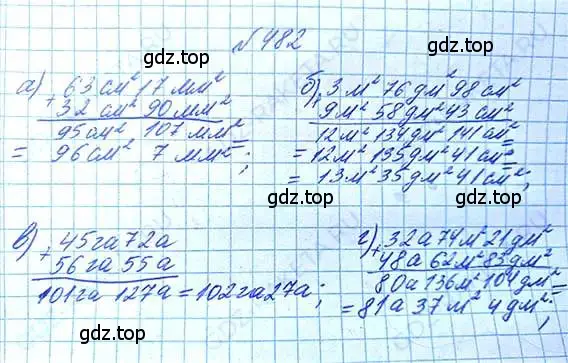 gdz.top
№482
а) + 63 см² 17 мм²
32 см² 90 мм²
95 см² 107 мм² =
= 96 см² 7 мм²;
б) + 3 м² 76 дм² 98 см²
9 м² 58 дм² 43 см²
12 м² 134 дм² 141 см² =
= 12 м² 135 дм² 41 см² =
= 13 м² 35 дм² 41 см²;
gdz.top
gdz.top
в) + 45 га 72 а
56 га 55 а
101 га 127 а = 102 га 27 а;
г) + 32 а 74 м² 21 дм²
48 а 62 м² 83 дм²
80 а 136 м² 104 дм² =
= 81 а 37 м² 4 дм²;
gdz.top
gdz.top